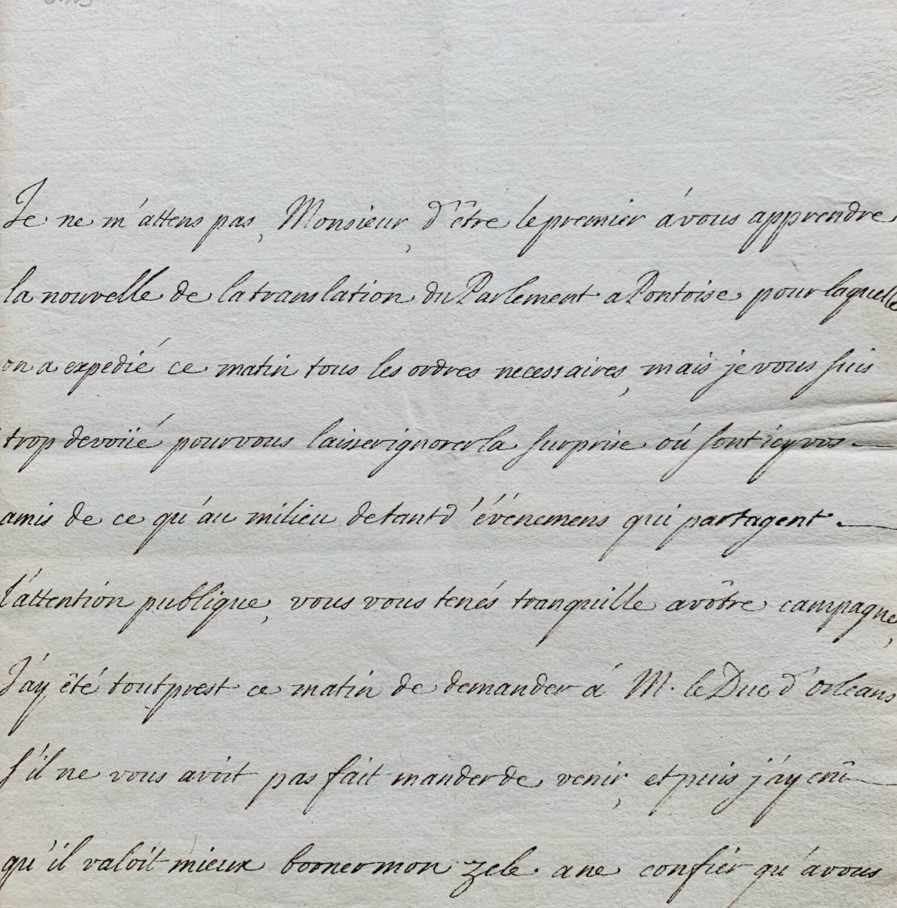 Je ne m'attens pas, Monsieur, d'être le premier á vous apprendre
la nouvelle de la translation du Parlement a Pontoise pour laquelle
on a expedié ce matin tous les ordres necessaires, mais je vous suis
trop devoüé pour vous laisser ignorer la surprise oú sont icy vos
amis de ce qu'au milieu de tant d'événemens qui partagent
l'attention publique, vous vous tenés tranquille a vôtre campagne,
J'ay été tout prest ce matin de demander á M. le Duc d'orleans
s'il ne vous avoit pas fait mander de venir, et puis j'ay crû
qu'il valoit mieux borner mon zele a ne confier qu'a vous